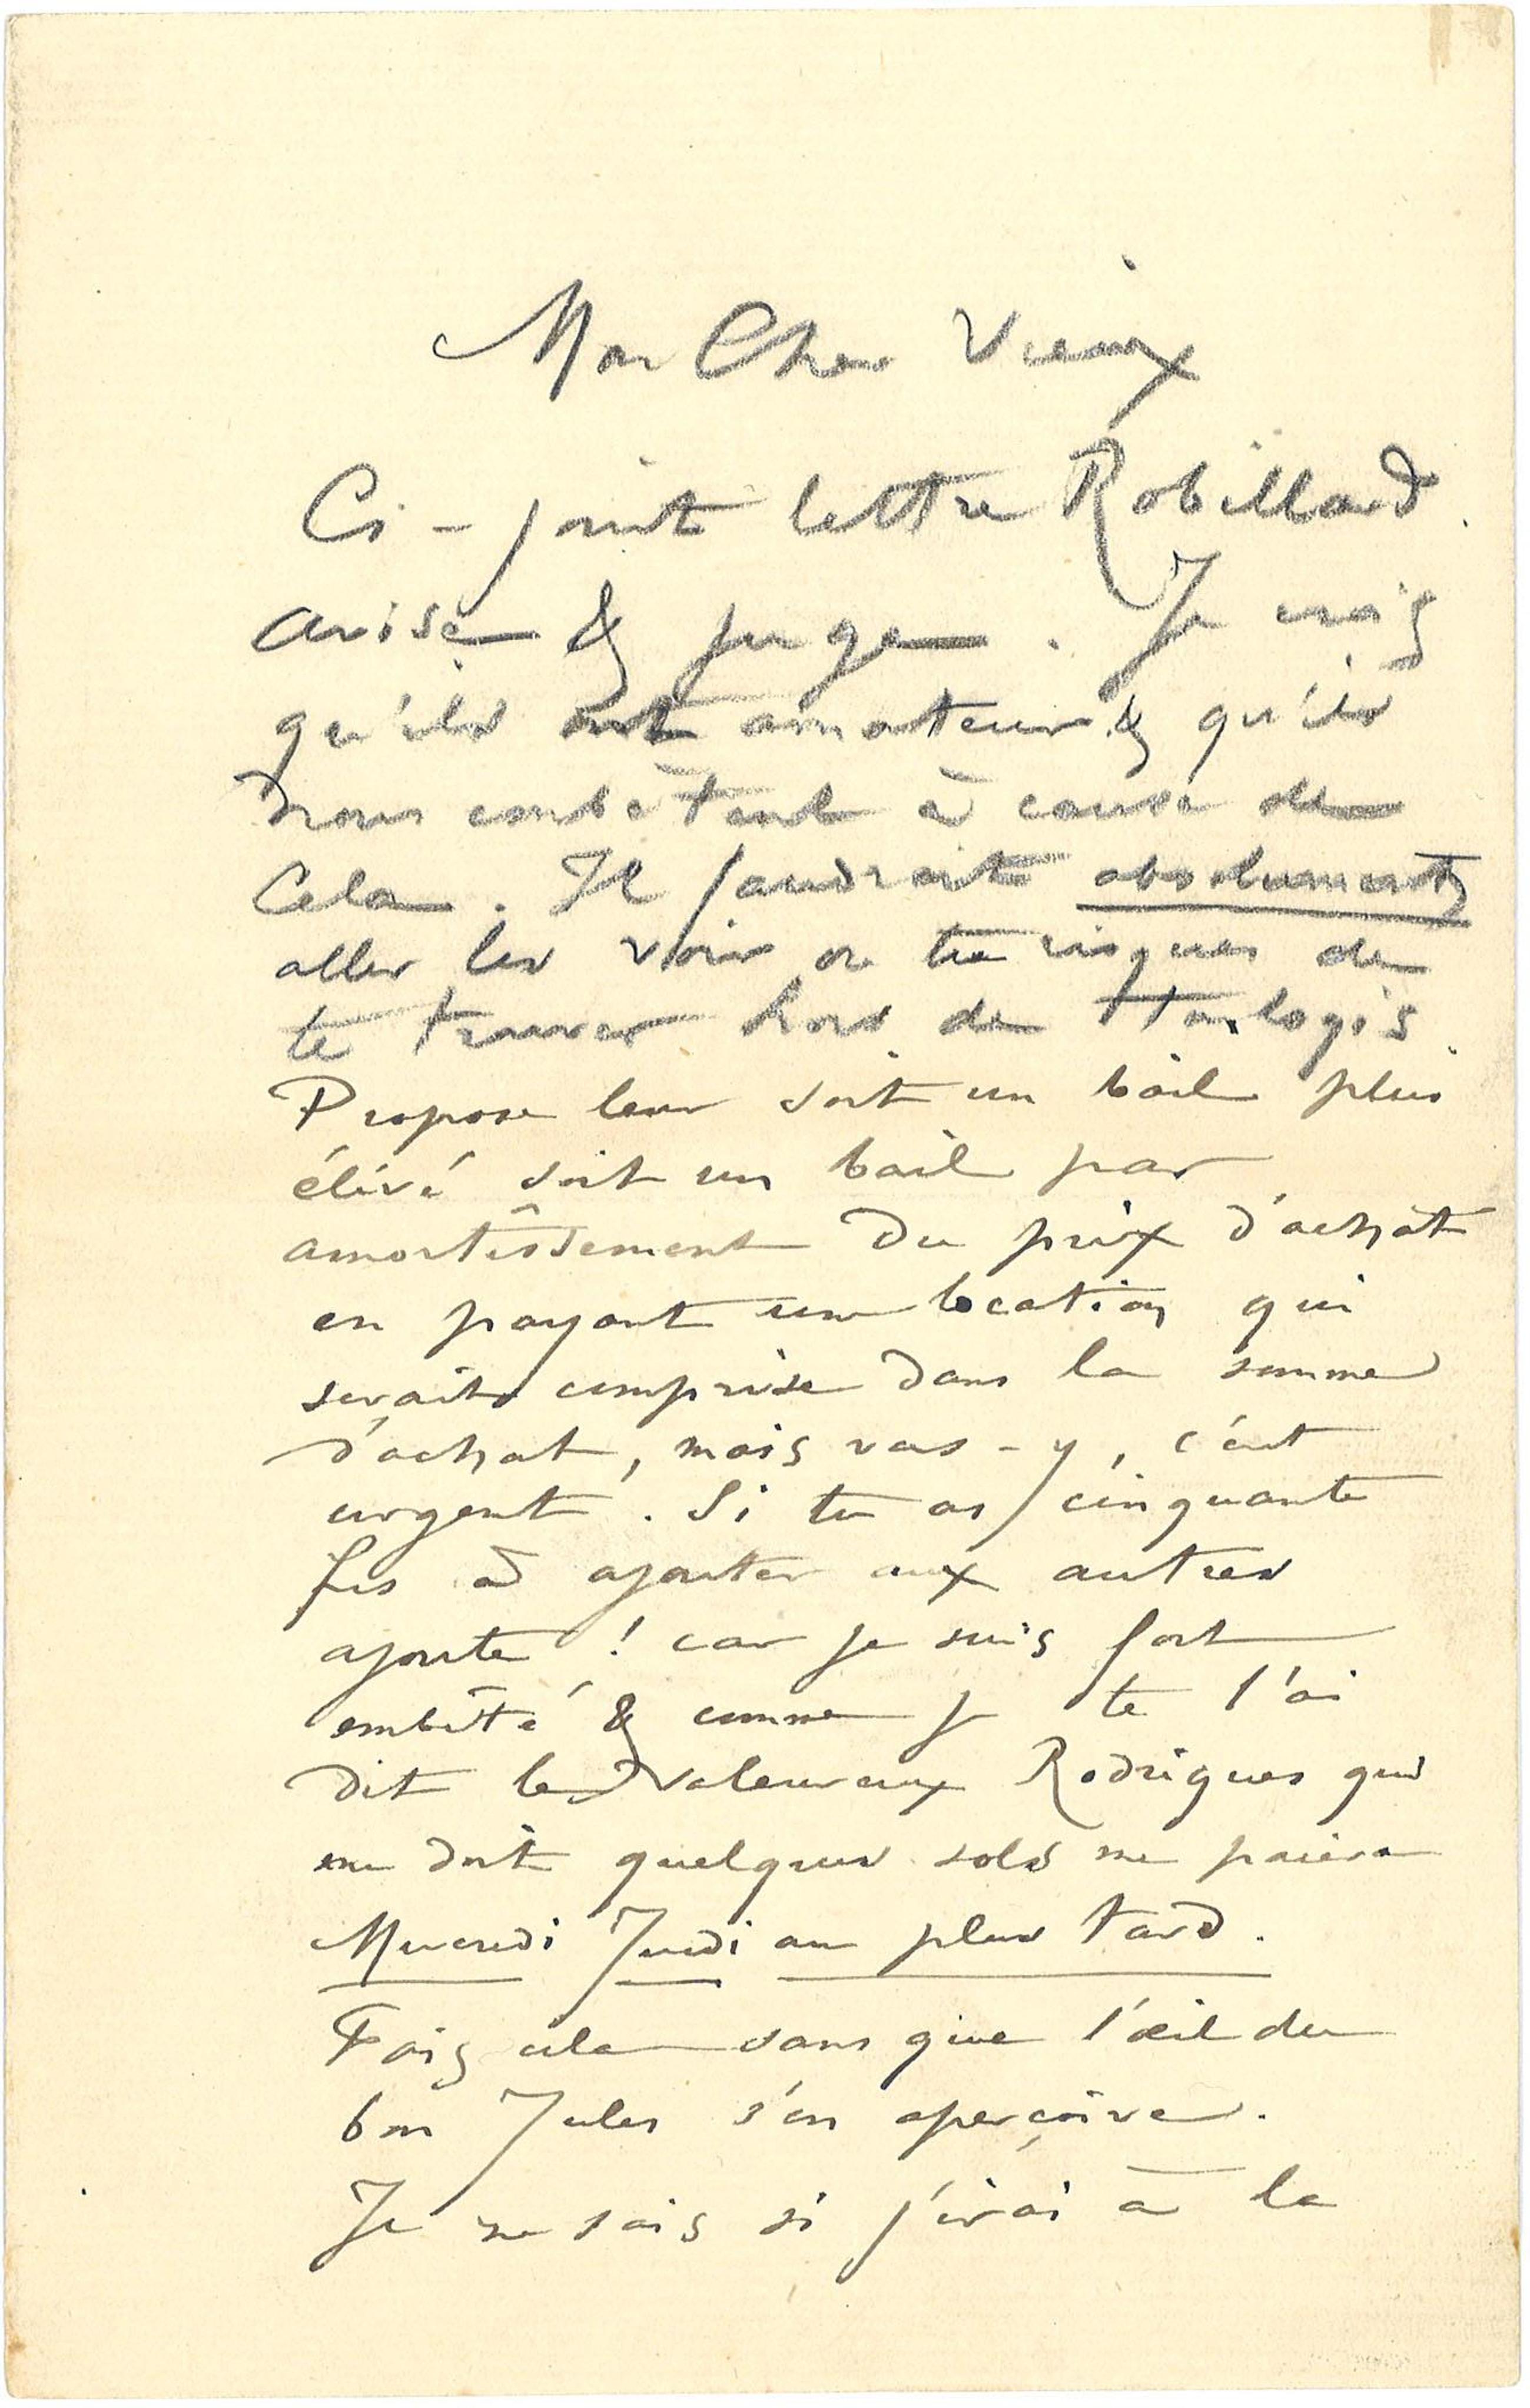 Mon Cher Vieux
Ci-joint lettre Robillard.
avise & juge. Je crois
qu'ils ont amateur & qu'ils
nous embêtent à cause de
Cela. Il faudrait absolument
aller les voir ou tu risques de
te trouver hors de ton logis.
Propose leur soit un bail plus
élévé soit un bail par
amortissement du prix d'achat
en payant une location qui
serait comprise dans la somme
d'achat, mais vas-y, c'est
urgent. Si tu as cinquante
frs à ajouter aux autres
ajoute! car je suis fort
embêté & comme je te l'ai
dit le valeureux Rodrigues qui
me doit quelques sols me paiera
Mercredi Jeudi au plus tard.
Fais cela sans que l'œil du
bon Jules s'en aperçoive.
Je ne sais si j'irai à la